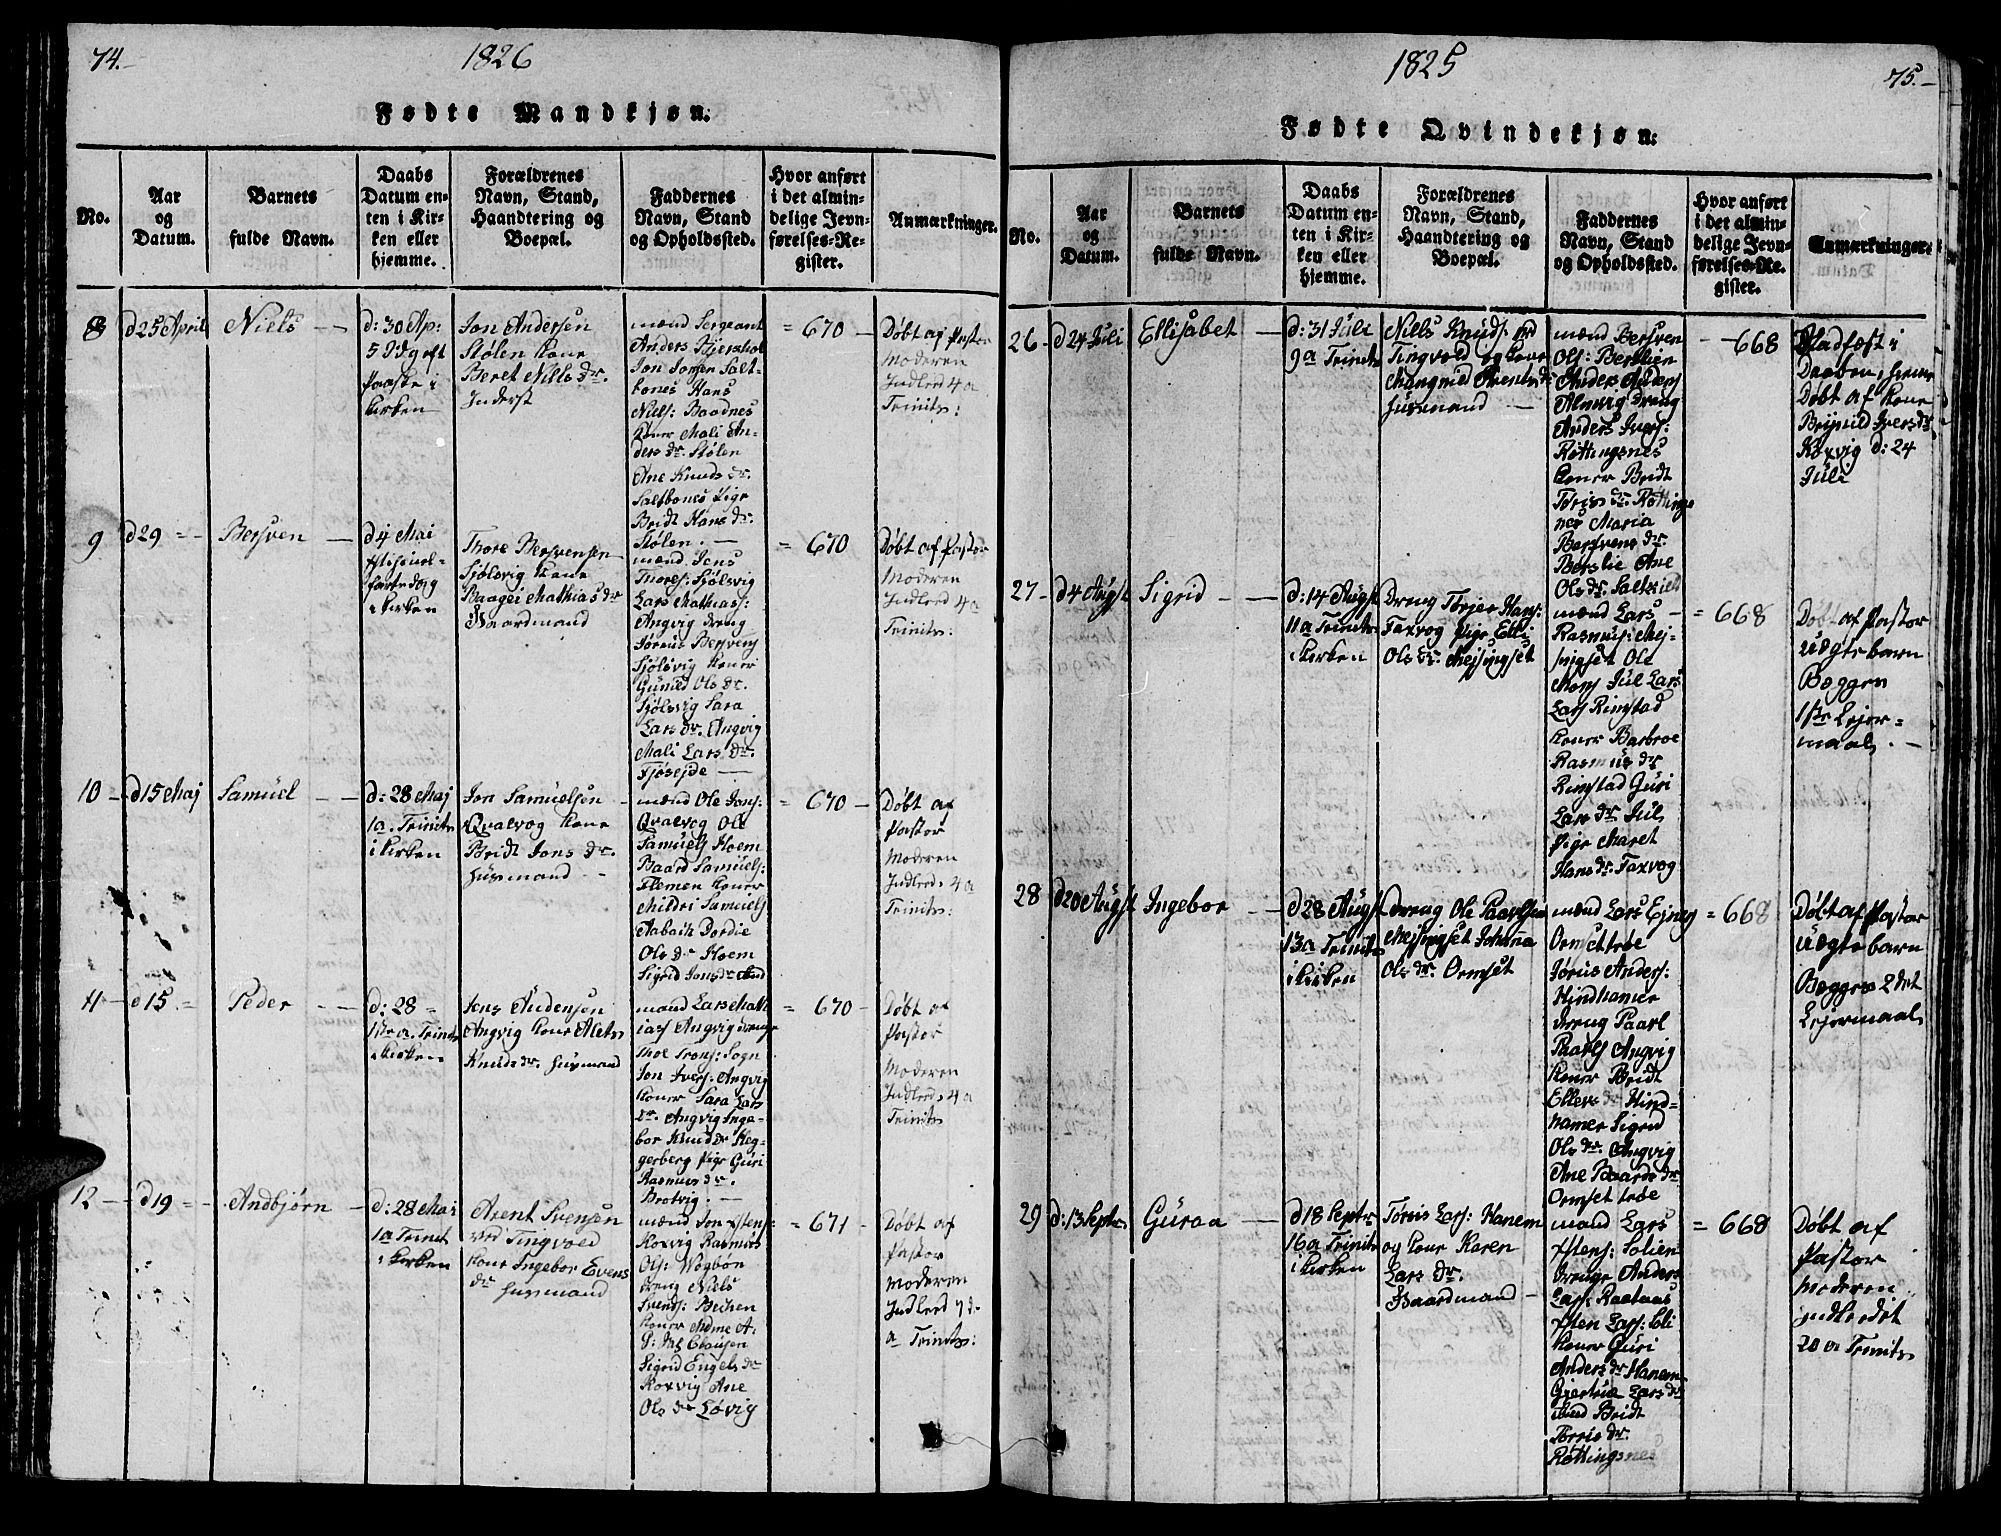 74.-
1826
Fødte Mandkjøn:
No.
Aar
og
Datum.
Barnets
fulde Navn.
Daabs
Datum en-
ten i Kir-
ken eller
hjemme.
Forældrenes
Navn, Stand,
Haandtering og
Boepæl.
Faddernes
Navn, Stand
og Opholdssted.
Hvor anført
i det almin-
delige Jevn-
førelses-Re-
gister.
Anmærkninger.
8
d25 April
Niels
d: 30 Ap:
5
Paaske i
Kirken
Jon Andersen
Stølen Kone
Beret Nills dr.
Inderst
mænd Sergeant
Anders
Jon
bones Hans
Niels: Baadnes
Koner Mali An-
ders dr. Stølen
Ane Knuds dr.
Saltbones Pige
Bridt Hans dr.
Stølen. -
= 670 -
Døbt af Pastor
Moderen
Indled 4 a
Trinits:
9
d29 =
Bersven
d4 Mai
i Kirken
Thore Bersvensen
Sjølsvig Kone
Baagei Mathias dr
Gaardmand
mænd Jens
Thores: Sjølsvig
Lars Mathias:
Angvig Dreng
Jørius Bersvens
Sjølsvig Koner
Guned Ols dr.
Sjølsvig Sara
Lars dr. Angvig
Mali Lars dr.
Fjøseide
= 670
Døbt af Pastor
Moderen
Indled 4 a
Trinits:
10 -
d15 Maj
Samuel
d: 28 Maj
1 a. Trinits
i Kirken
Jon Samuelsen
Qvalvog Kone
Bridt Jons dr.
Husmand
mænd Ole Jons:
Qvalvog Ole
Samuels Hoem
Baard Samuels:
Flemen Koner
Mildri Samuels
Aabach Dordie
Ols dr Hoem
Sigrid Jons dr
= 670 -
Døbt af
Pastor
Moderen
Indled 4 a
Trinits:
11 -
d15. =
Peder
d: 28 =
1ste a. Trinits
i Kirken
Jens Andersen
Angvig Kone Alets
Knuds dr. Husmand
mænd Lars Math
ias Angvig Drenge
Thoe Trons: Sogn
Jon Ivers: Angvig
Koner Sara Lars
dr. Angvig Inge-
bor Knud dr Heg-
gerberg Pige Guri
Rasmus dr.
Brotvig. -
= 670 -
Døbt af
Pastor
Moderen
Indled 4 a
Trinits:
12 -
d19 =
Andbjørn
d: 28 Mai
1 a Trinit
i Kirken
Arent Svensen
ved Tingvold
Kone Ingebor Evens
dr Husmand
mænd Jon Estens:
Koxvig Rasmus
Ols: Wogbøe
dreng Niels
Svends: Beiken
Koner Anne A:
Clausen
Sigrid Engels dr
Koxvig Ane
Ols dr Løvig
= 671 -
Døbt af
Pastor
Moderen
Indled 7 de
a Trinits:
1825
75.-
Fødte Qvindekjøn:
No.
Aar
og
Datum.
Barnets
fulde Navn.
Daabs
Datum en-
ten i Kir-
ken eller
hjemme.
Forældrenes
Navn, Stand,
Haandtering og
Boepæl.
Faddernes
Navn, Stand
og Opholdssted.
Hvor anført
i det almin-
delige Jevn-
førelses-Re-
gister.
Anmærkninger.
26 -
d24 Juli
Ellisabet
d: 31 Juli
9 a Trinits
Niels Knuds:
Tingvold og Kone
Marigrid Arents dr
Husmand
mænd Bersven
Ols: Berslien
Anders Anders
Almvig Dreng
Anders Ivers:
Røttingsnes
Koner Bridt
Tøris dr. Røttings
nes Maria
Bersvens dr.
Berslie Ane
Ols dr. Saltkield
- 668
Stadfæst i
Daaben, hjeme
Døbt af Kone
Brynild Ivers dr
Koxvig d: 24
Juli
27 -
d4 Augst
Sigrid
d: 14 Augst
11 a Trinits
i Kirken
Dreng Torjer Hans:
Taxvog Pige Elli
Ols dr: Mejsingset
mænd Lars
Rasmus: Mej-
singset Ole
Mons Jul Lars
Lars Rimstad
Koner Barbroe
Rasmus dr
Rimstad Guri
Lars dr Jul,
Pige Maret
Hans dr. Taxvog
= 668
Døbt af Pastor
uægte barn
Begges
1ste Lejer =
maal. -
28
d20 Augst
Ingebor
d28 Augst
13 a Trinits
i Kirken
dreng Ole Paarlsen
Mejsingset Johana
Ols dr. Ormset
mænd Lars Ejnes
Ormsettrøe
Jørius Anders:
Hindhamer
dreng Paarl
Paarls Angvig
Koner Bridt
Ellevs dr Hind-
hamer Sigrid
Ols dr. Angvig
Ane Baards dr
Ormsettrøe
= 668
Døbt af Pastor
uægte barn
Begges 2det
Lejermaal
29
d: 13 Septr.
Guroa
d18 Septr
16 a Trinits
i Kirken
Tøriis Lars: Hanem
og Kone Karen
Lars dr.
Gaardmand -
mænd Lars
Estens: Solien
Drenge Anders
Lars: Raataas
Esten Lars: Soli
Koner Guri
Anders dr Hanem
Giertrue Lars dr
Bridt
Tøris dr.
Røttingsnes
= 668
Døbt af
Pastor
Moderen
indledet
20 a Trinits